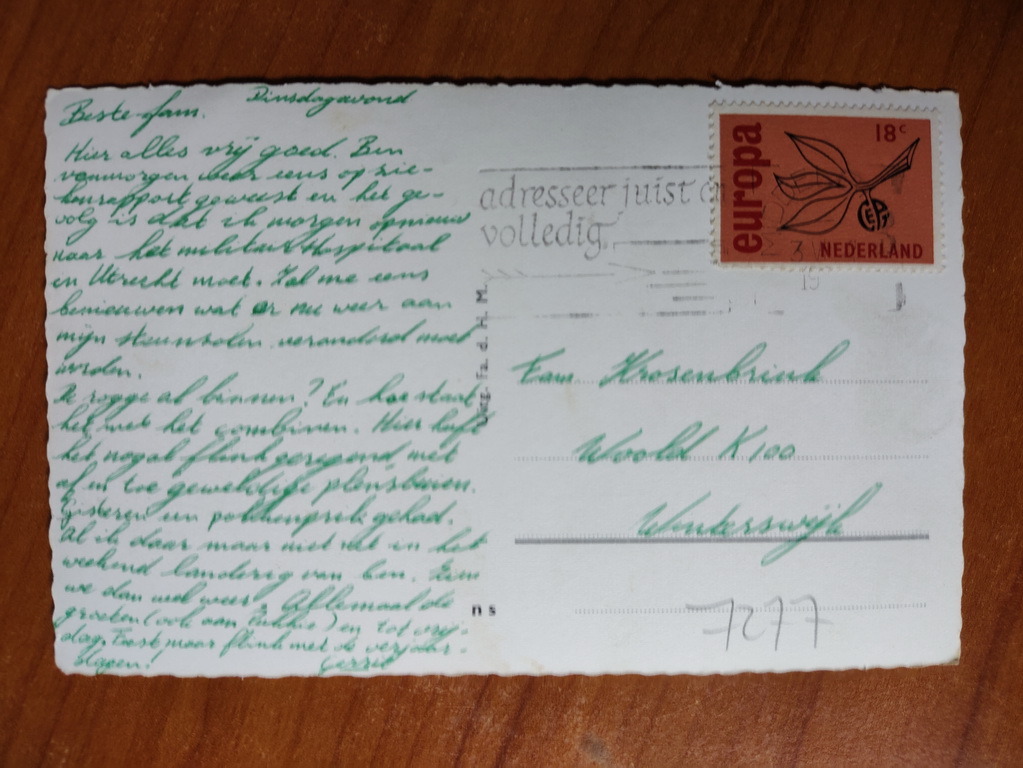 Dinsdagavond
Beste fam.
Hier alles vrij goed. Ben
vanmorgen weer eens op zie-
kenrapport geweest en het ge-
volg is dat ik morgen opnieuw
naar het militair Hospitaal
in Utrecht moet. Zal me eens
benieuwen wat er nu weer aan
mijn steunzolen veranderd moet
worden.
De rogge al binnen? En hoe staat
het met het combinen. Hier heeft
het nogal flink geregend met
af en toe geweldige plensbuien.
Gisteren een pokkenprik gehad.
Al ik daar maar niet in het
weekend landerig van ben. Zien
we dan wel weer. Allemaal de
groeten (ook aan) en tot vrij-
dag. Eerst maar flink met de verjaar-
slapen!
Gerrit
Uitg. Fa. d. H. M.
ns
adresseer juist en
volledig
europa
18c
CEPT
NEDERLAND
Fam Krosenbrink
Woold K100
Winterswijk
7277